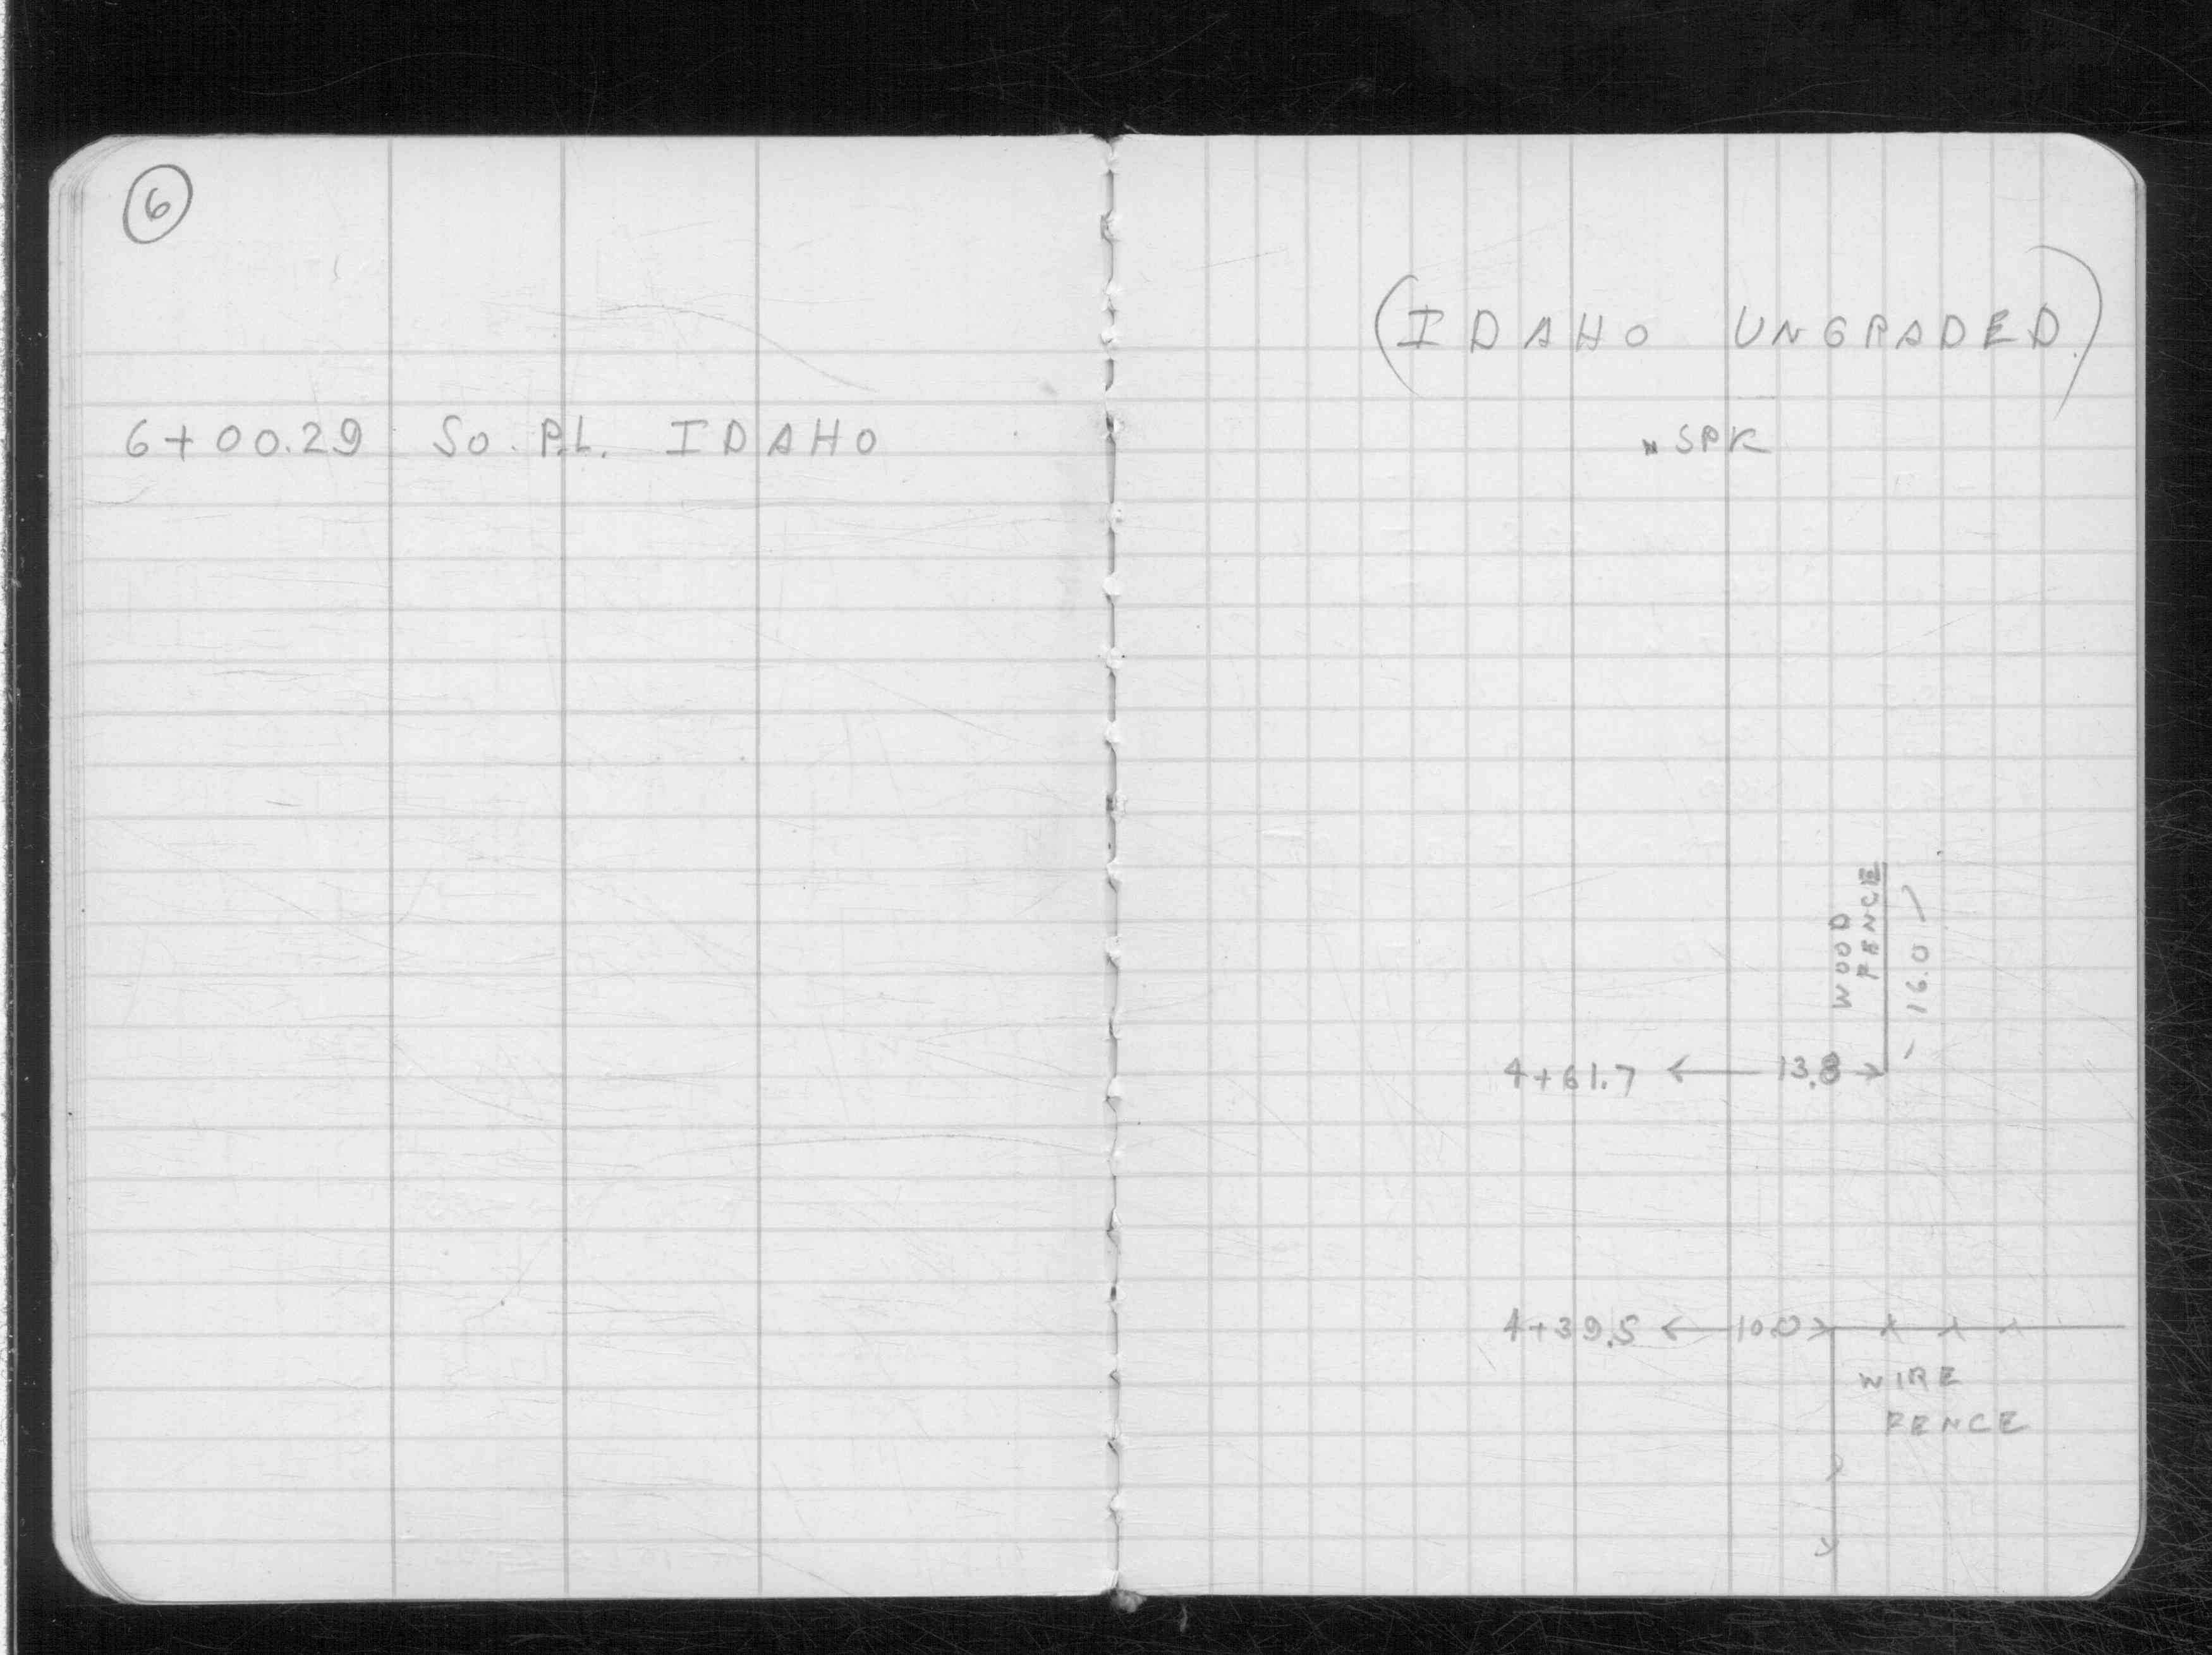 6
6+00.29 So. P.L. IDAHO
(IDAHO UNGRADED)
SPK
WOOD
FENCE
16.0
4+61.7 13.8
4+39.5 10.0
WIRE
FENCE